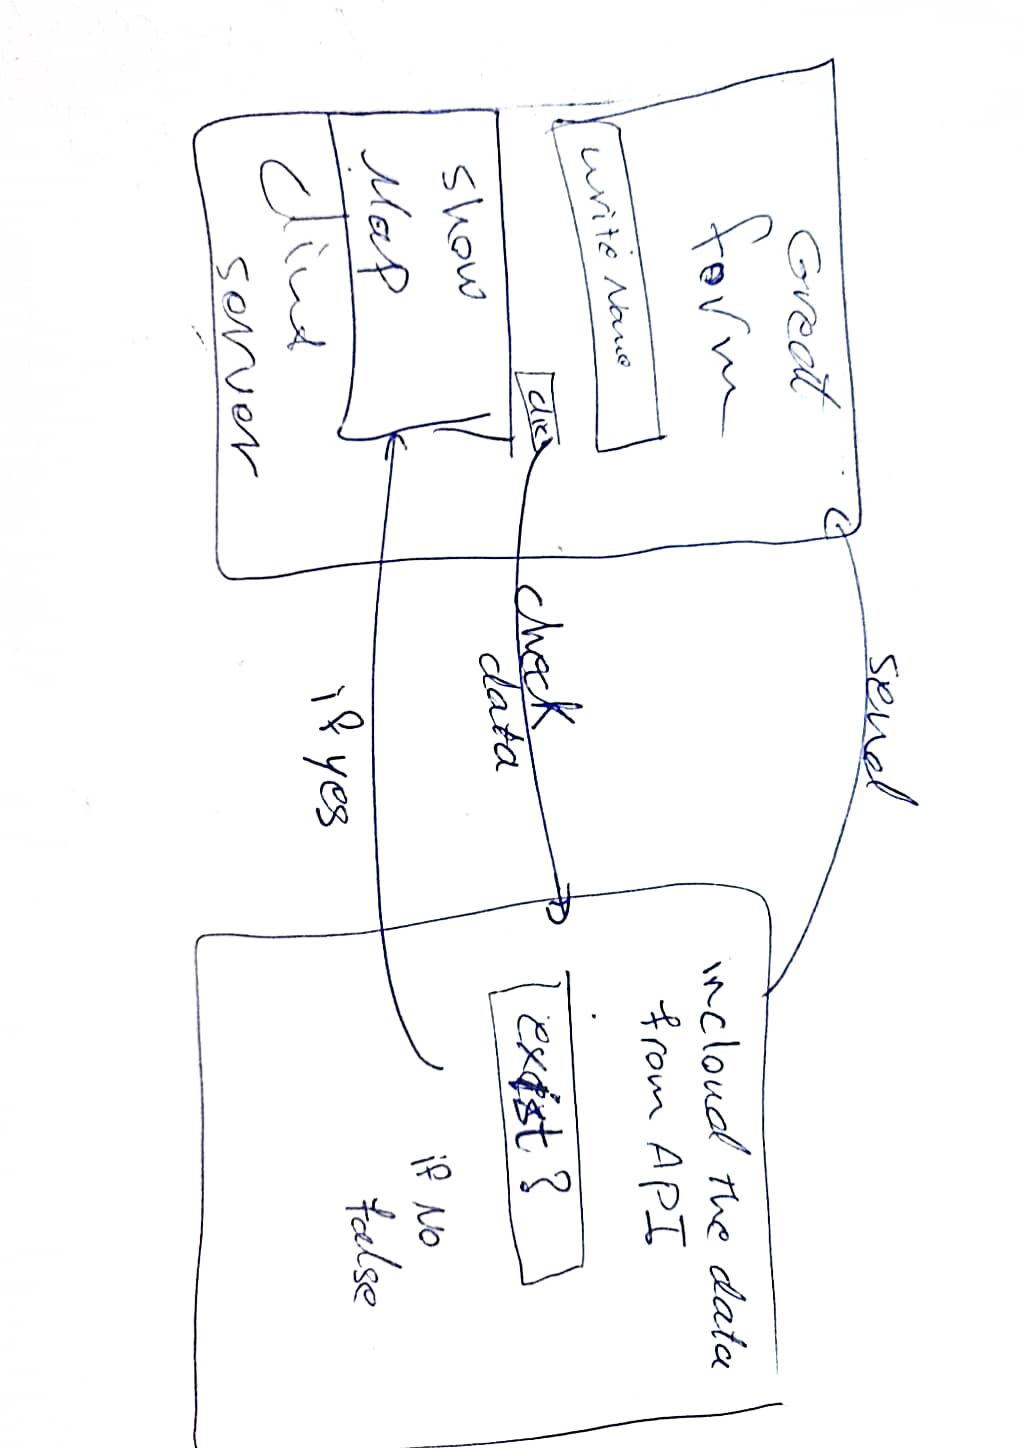 send
Great
form
write Name
clic
show
Map
clint
server
check
data
if yes
incloud the data
from API
exist ?
if No
false